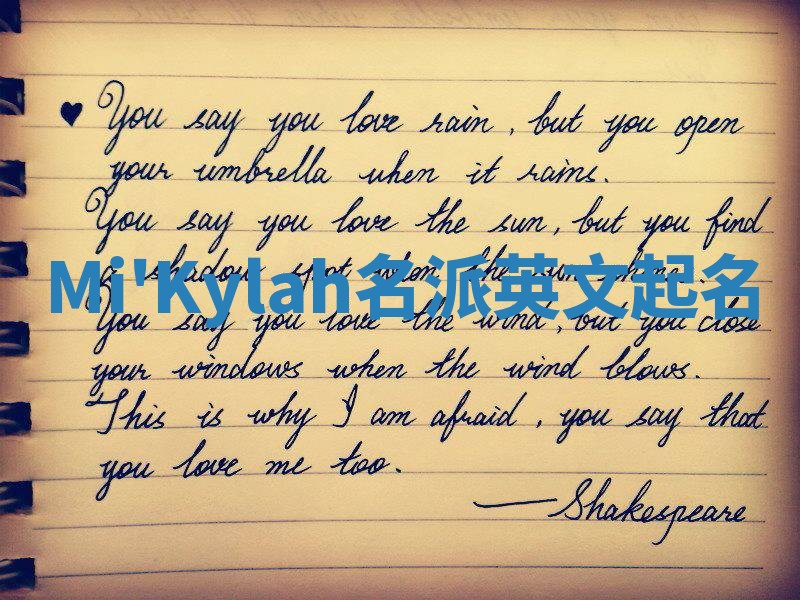 ♥ You say you love rain, but you open
your umbrella when it rains.
You say you love the sun, but you find
a shadow spot when the sun shines.
Mi'Kylah名派英文起名
You say you love the wind, but you close
your windows when the wind blows.
This is why I am afraid, you say that
you love me too.
—Shakespeare